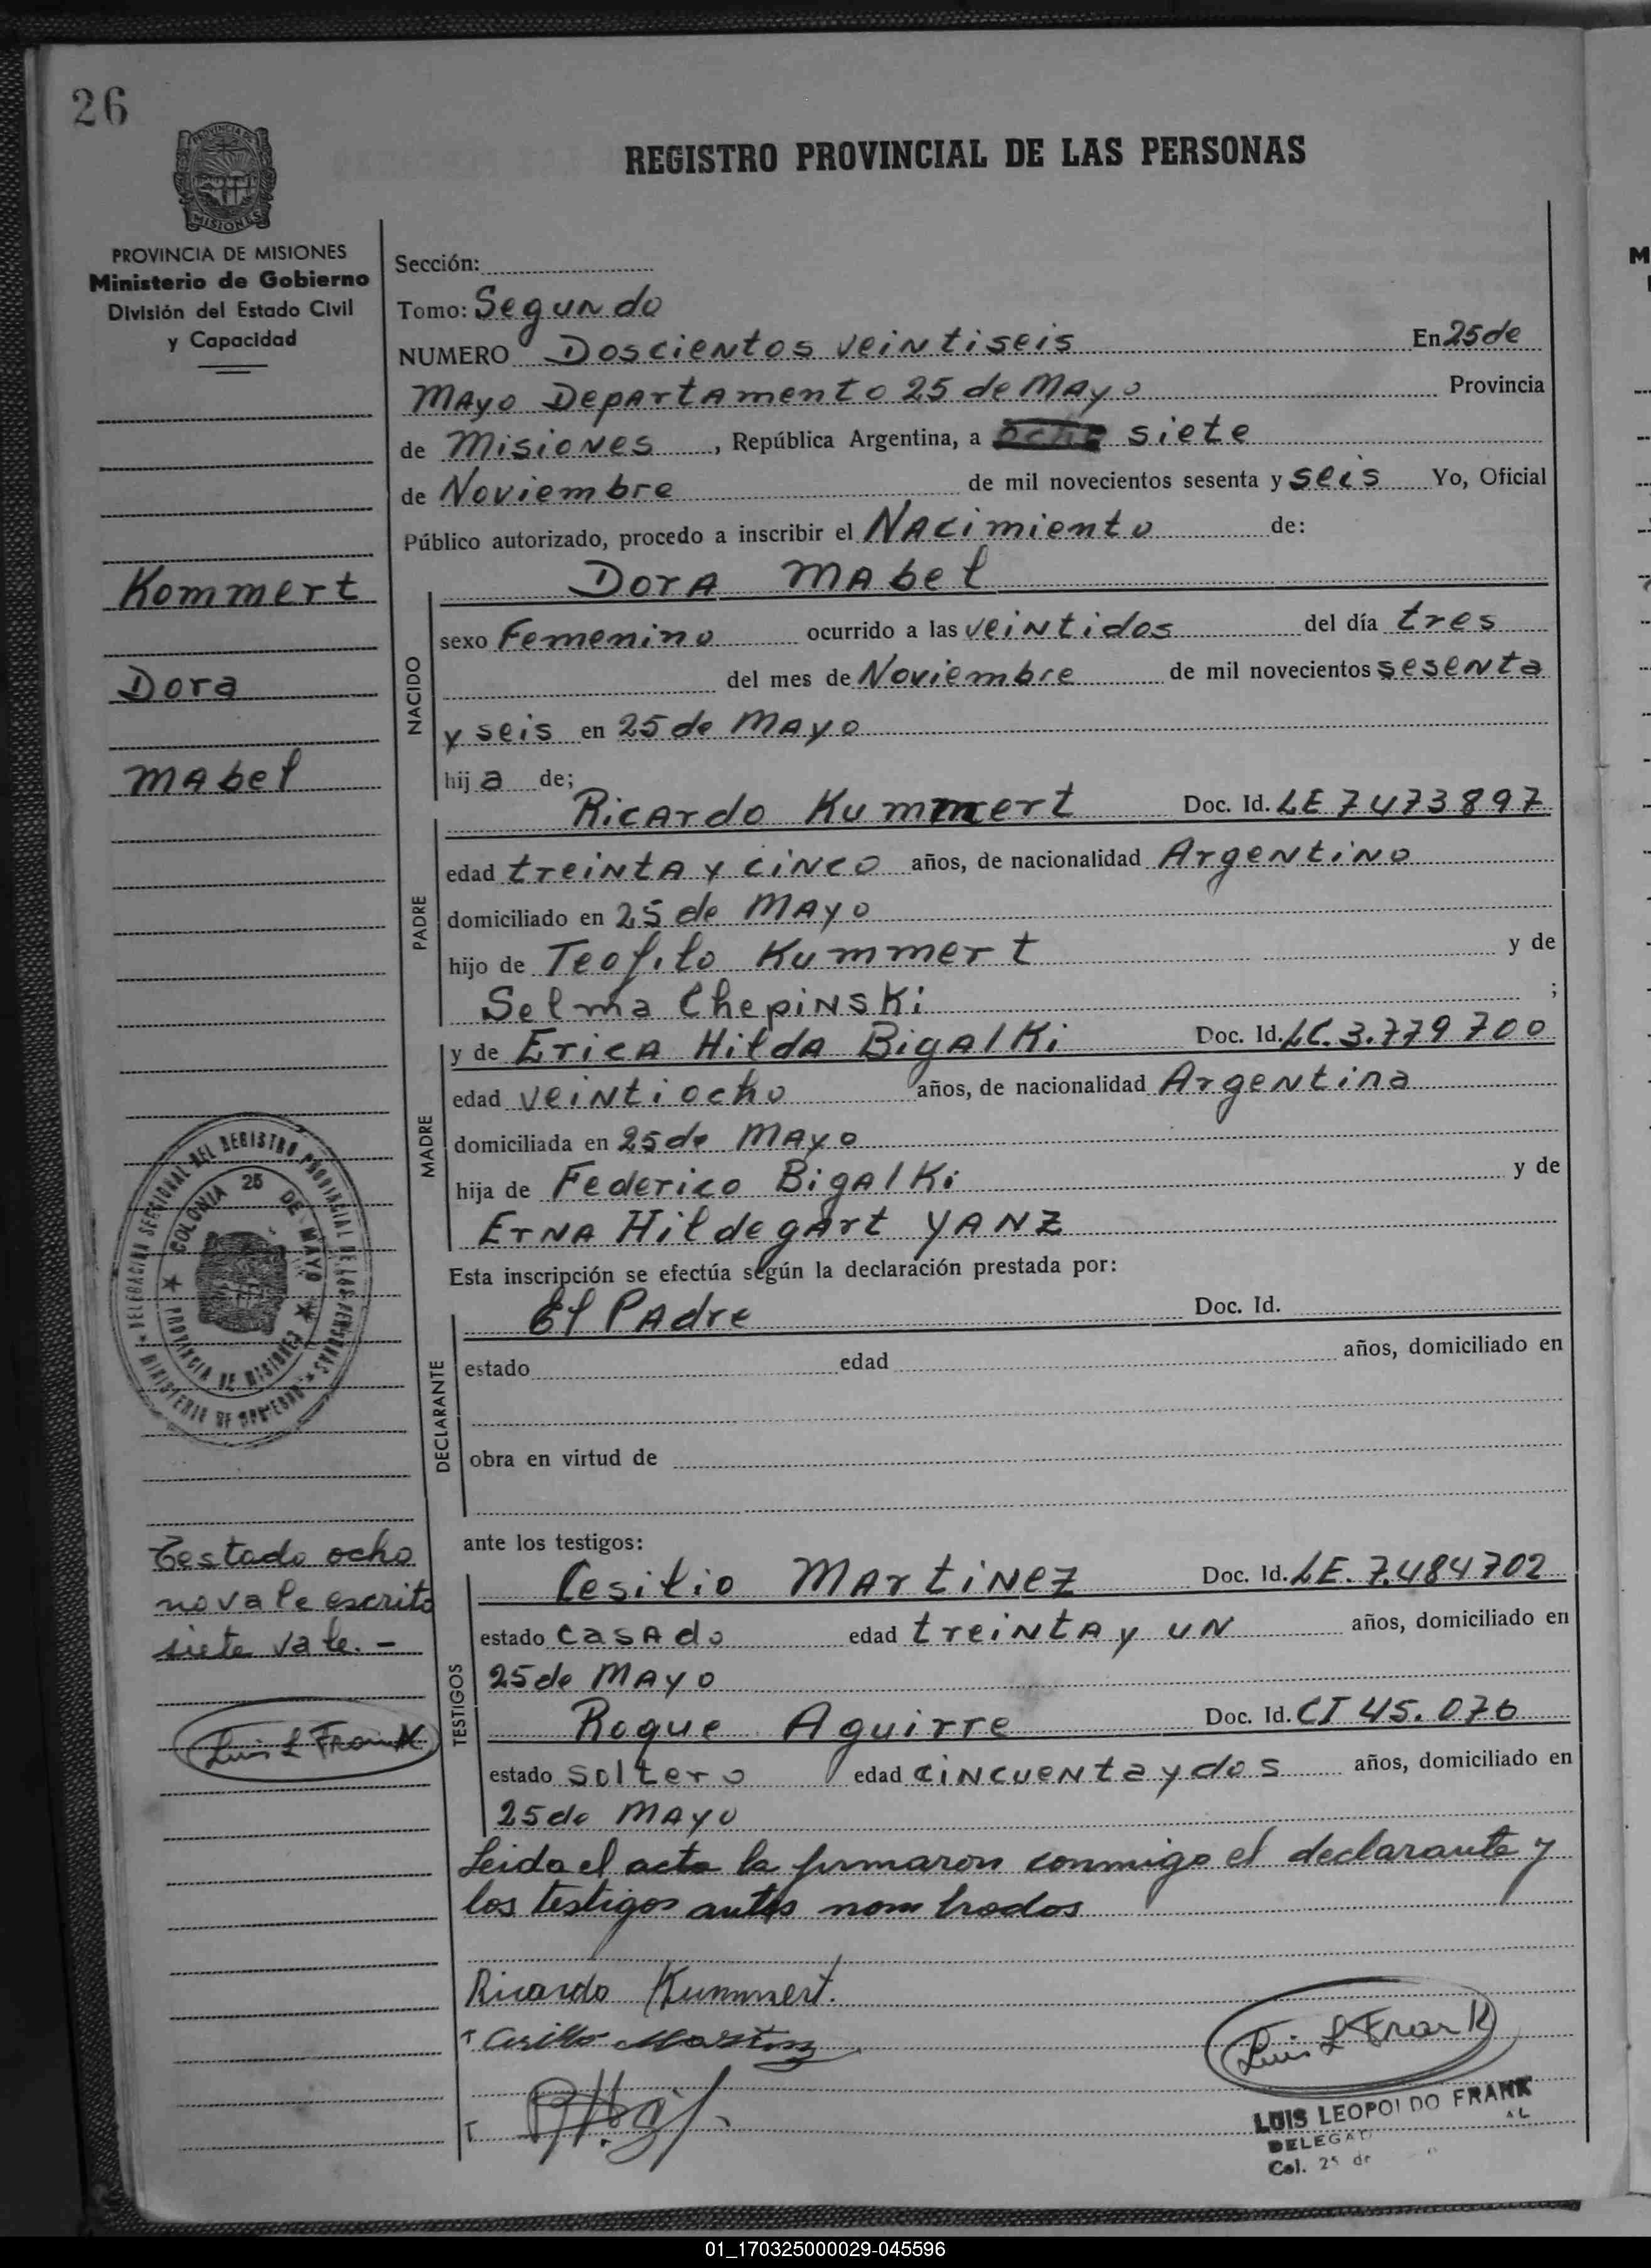 26
PROVINCIA DE MISIONES
REGISTRO PROVINCIAL DE LAS PERSONAS
PROVINCIA DE MISIONES
Ministerio de Gobierno
División del Estado Civil
y Capacidad
Sección:
Tomo: Segundo
NUMERO Doscientos veintiseis En 25 de
Mayo Departamento 25 de Mayo Provincia
de Misiones, República Argentina, a ocho siete
de Noviembre de mil novecientos sesenta y seis Yo, Oficial
Público autorizado, procedo a inscribir el Nacimiento de:
Kommert
Dora
Mabel
NACIDO
Dora Mabel
sexo Femenino ocurrido a las veintidos del día tres
del mes de Noviembre de mil novecientos sesenta
y seis en 25 de Mayo
hija de;
PADRE
Ricardo Kummert Doc. Id. LE 7473897
edad treinta y cinco años, de nacionalidad Argentino
domiciliado en 25 de Mayo
hijo de Teofilo Kummert y de
Selma Chepinski ;
MADRE
y de Erica Hilda Bigalki Doc. Id. LC. 3.779700
edad veintiocho años, de nacionalidad Argentina
domiciliada en 25 de Mayo
hija de Federico Bigalki y de
Erna Hildegart YANZ
DELEGACION SECCIONAL DEL REGISTRO PROVINCIAL DE LAS PERSONAS
MINISTERIO DE GOBIERNO
COLONIA 25 DE MAYO
PROVINCIA DE MISIONES
Esta inscripción se efectúa según la declaración prestada por:
DECLARANTE
El Padre Doc. Id.
estado edad años, domiciliado en
obra en virtud de
ante los testigos:
Testado ocho
no vale escrito
siete vale. -
Luis L Frank
TESTIGOS
Cesilio Martinez Doc. Id. LE. 7.484702
estado casado edad treinta y un años, domiciliado en
25 de Mayo
Roque Aguirre Doc. Id. CI 45.076
estado soltero edad cincuenta y dos años, domiciliado en
25 de Mayo
Leida el acta la firmaron conmigo el declarante y
los testigos antes nombrados
Ricardo Kummert.
Luis L Frank
LUIS LEOPOLDO FRANK
Col. 25 de
01_170325000029-045596